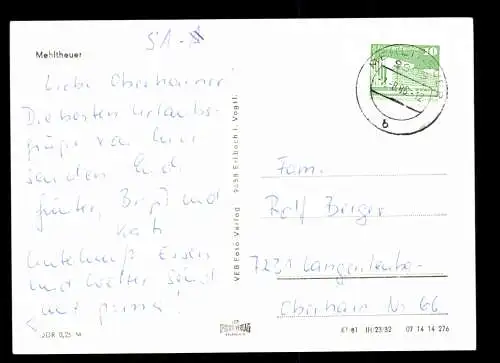 Mehltheuer
Liebe Oberhainer!
Die besten Urlaubs-
grüße von hier
senden Euch
Günter, Birgit und
Kati
Unterkunft, Essen
und Wetter sind
prima!
DDR 0,25 M
VEB Foto-Verlag 9658 Erlbach i. Vogtl.
Fam.
Rolf Berger
7231 Langenleuba-
Oberhain Nr 66
61 81 III/23/32 07 14 14 276